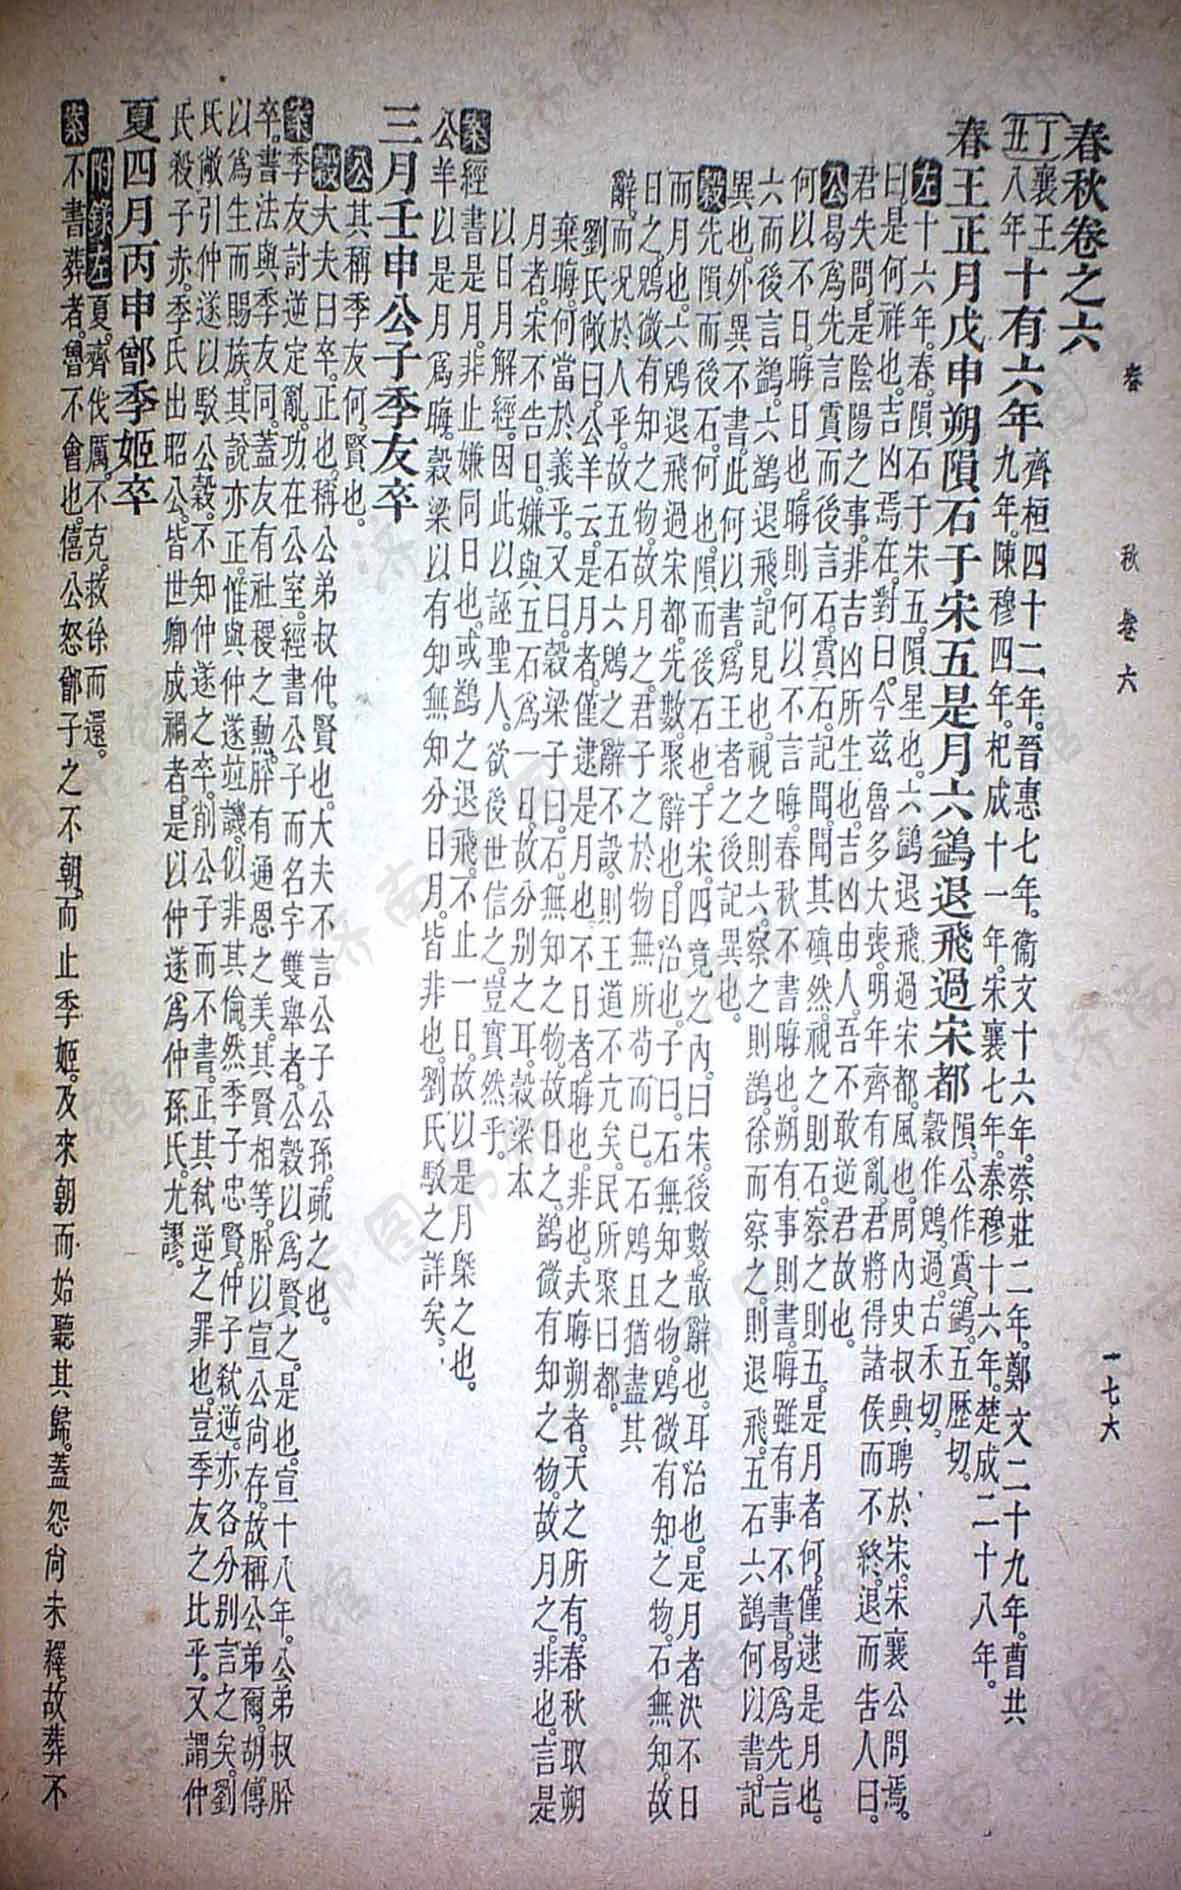 春秋 卷六 一七六
春秋卷之六
丁丑襄王八年十有六年齊桓四十二年。晉惠七年。衞文十六年。蔡莊二年。鄭文二十九年。曹共
九年。陳穆四年。杞成十一年。宋襄七年。秦穆十六年。楚成二十八年。
春王正月戊申朔隕石于宋五是月六鷁退飛過宋都隕。公作霣。鷁。五歷切。
穀作鶂。過。古禾切。
左十六年。春。隕石于宋五。隕星也。六鷁退飛過宋都。風也。周內史叔興聘於宋。宋襄公問焉。
曰。是何祥也。吉凶焉在。對曰。今茲魯多大喪。明年齊有亂。君將得諸侯而不終。退而告人曰。
君失問。是陰陽之事。非吉凶所生也。吉凶由人。吾不敢逆君故也。
公曷爲先言霣。而後言石。霣石。記聞。聞其磌然。視之則石。察之則五。是月者何。僅逮是月也。
何以不日。晦日也。晦則何以不言晦。春秋不書晦也。朔有事則書。晦雖有事不書。曷爲先言
六而後言鷁。六鷁退飛。記見也。視之則六。察之則鷁。徐而察之。則退飛。五石六鷁何以書。記
異也。外異不書。此何以書。爲王者之後記異也。
穀先隕而後石。何也。隕而後石也。于宋。四竟之內。曰宋。後數。散辭也。耳治也。是月者。決不日
而月也。六鶂退飛過宋都。先數。聚辭也。目治也。子曰。石無知之物。鶂微有知之物。石無知。故
日之。鶂微有知之物。故月之。君子之於物無所苟而已。石鶂且猶盡其
辭。而況於人乎。故五石六鶂之辭不設。則王道不亢矣。民所聚曰都。
劉氏敞曰。公羊云。是月者。僅逮是月也。不日者。晦也。非也。夫晦朔者。天之所有。春秋取朔
棄晦。何當於義乎。又曰。穀梁子曰。石。無知之物。故日之。鷁微有知之物。故月之。非也。言是
月者。宋不告日。嫌與五石爲一日。故分別之耳。穀梁本
以日月解經。因此以誣聖人。欲後世信之。豈實然乎。
案經書是月。非止嫌同日也。或鷁之退飛。不止一日。故以是月槩之也。
公羊以是月爲晦。穀梁以有知無知分日月。皆非也。劉氏駁之詳矣。
三月壬申公子季友卒
公其稱季友何。賢也。
穀大夫日卒。正也。稱公弟叔仲。賢也。大夫不言公子公孫。疏之也。
案季友討逆定亂。功在公室。經書公子而名字雙舉者。公穀以爲賢之。是也。宣十八年。公弟叔肸
卒。書法與季友同。蓋友有社稷之勳。肸有通恩之美。其賢相等。肸以宣公尚存。故稱公弟爾。胡傳
以爲生而賜族。其說亦正。惟與仲遂竝譏。似非其倫。然季子忠賢。仲子弒逆。亦各分別言之矣。劉
氏敞引仲遂以駁公穀。不知仲遂之卒。削公子而不書。正其弒逆之罪也。豈季友之比乎。又謂仲
氏殺子赤。季氏出昭公。皆世卿成禍者。是以仲遂爲仲孫氏。尤謬。
夏四月丙申鄫季姬卒
附錄左夏。齊伐厲。不克。救徐而還。
案不書葬者。魯不會也。僖公怒鄫子之不朝。而止季姬。及來朝而始聽其歸。蓋怨尚未釋。故葬不